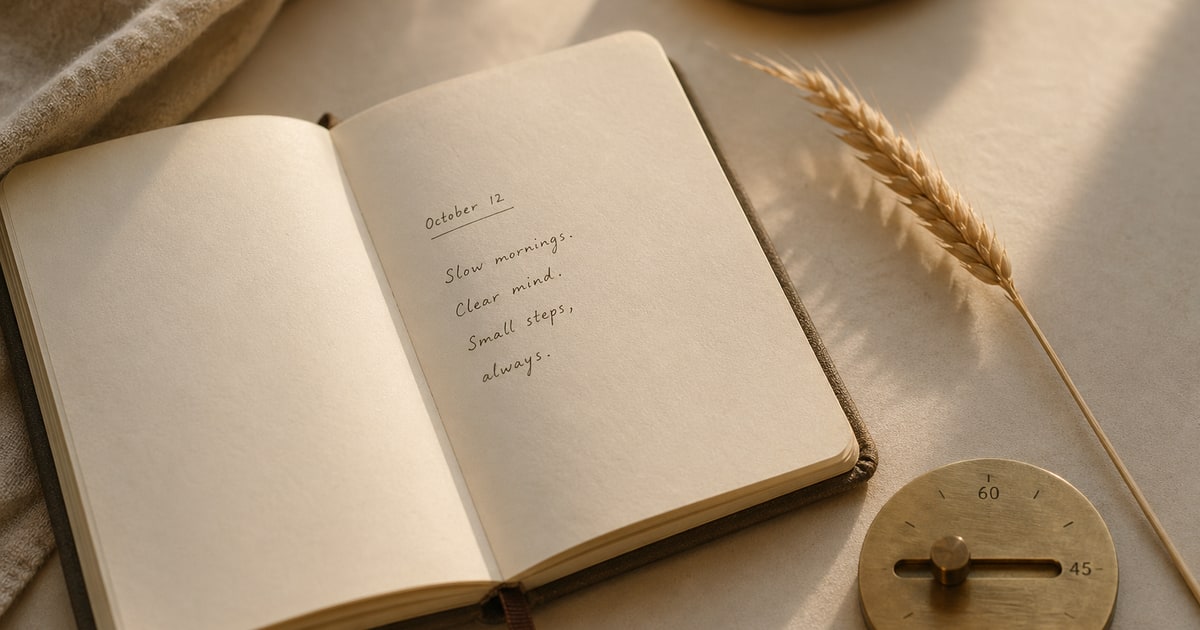 October 12
Slow mornings.
Clear mind.
Small steps,
always.
60
45